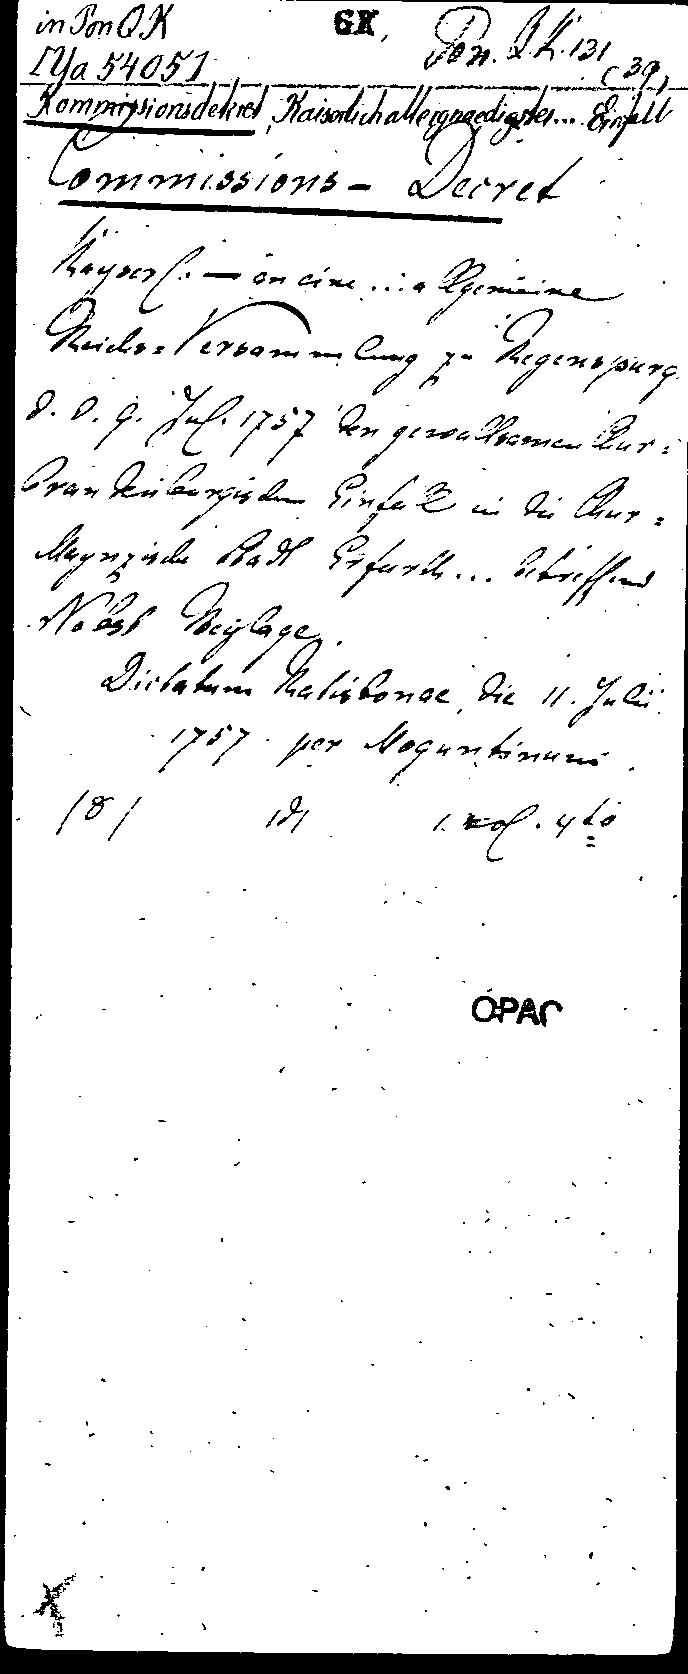 in Pon QK GK, Pon. Z.K. 131
IYa 54051 (39,
Kommissionsdekret, Kaiserlich allergnaedigstes... Einfall
Commissions - Decret
Kayserl. — an eine ... allgemeine
Reichs-Versammlung zu Regenspurg
d. d. 9. Jul. 1757 den gewaltsamen Chur-
brandenburgischen Einfall in die Chur-
Maynzische Stadt Erfurth... betreffend
Nebst Beylage.
Dictatum Ratisbonae, die 11. Julii
1757 per Moguntinum.
/8/ 1. vol. 4to
OPAC